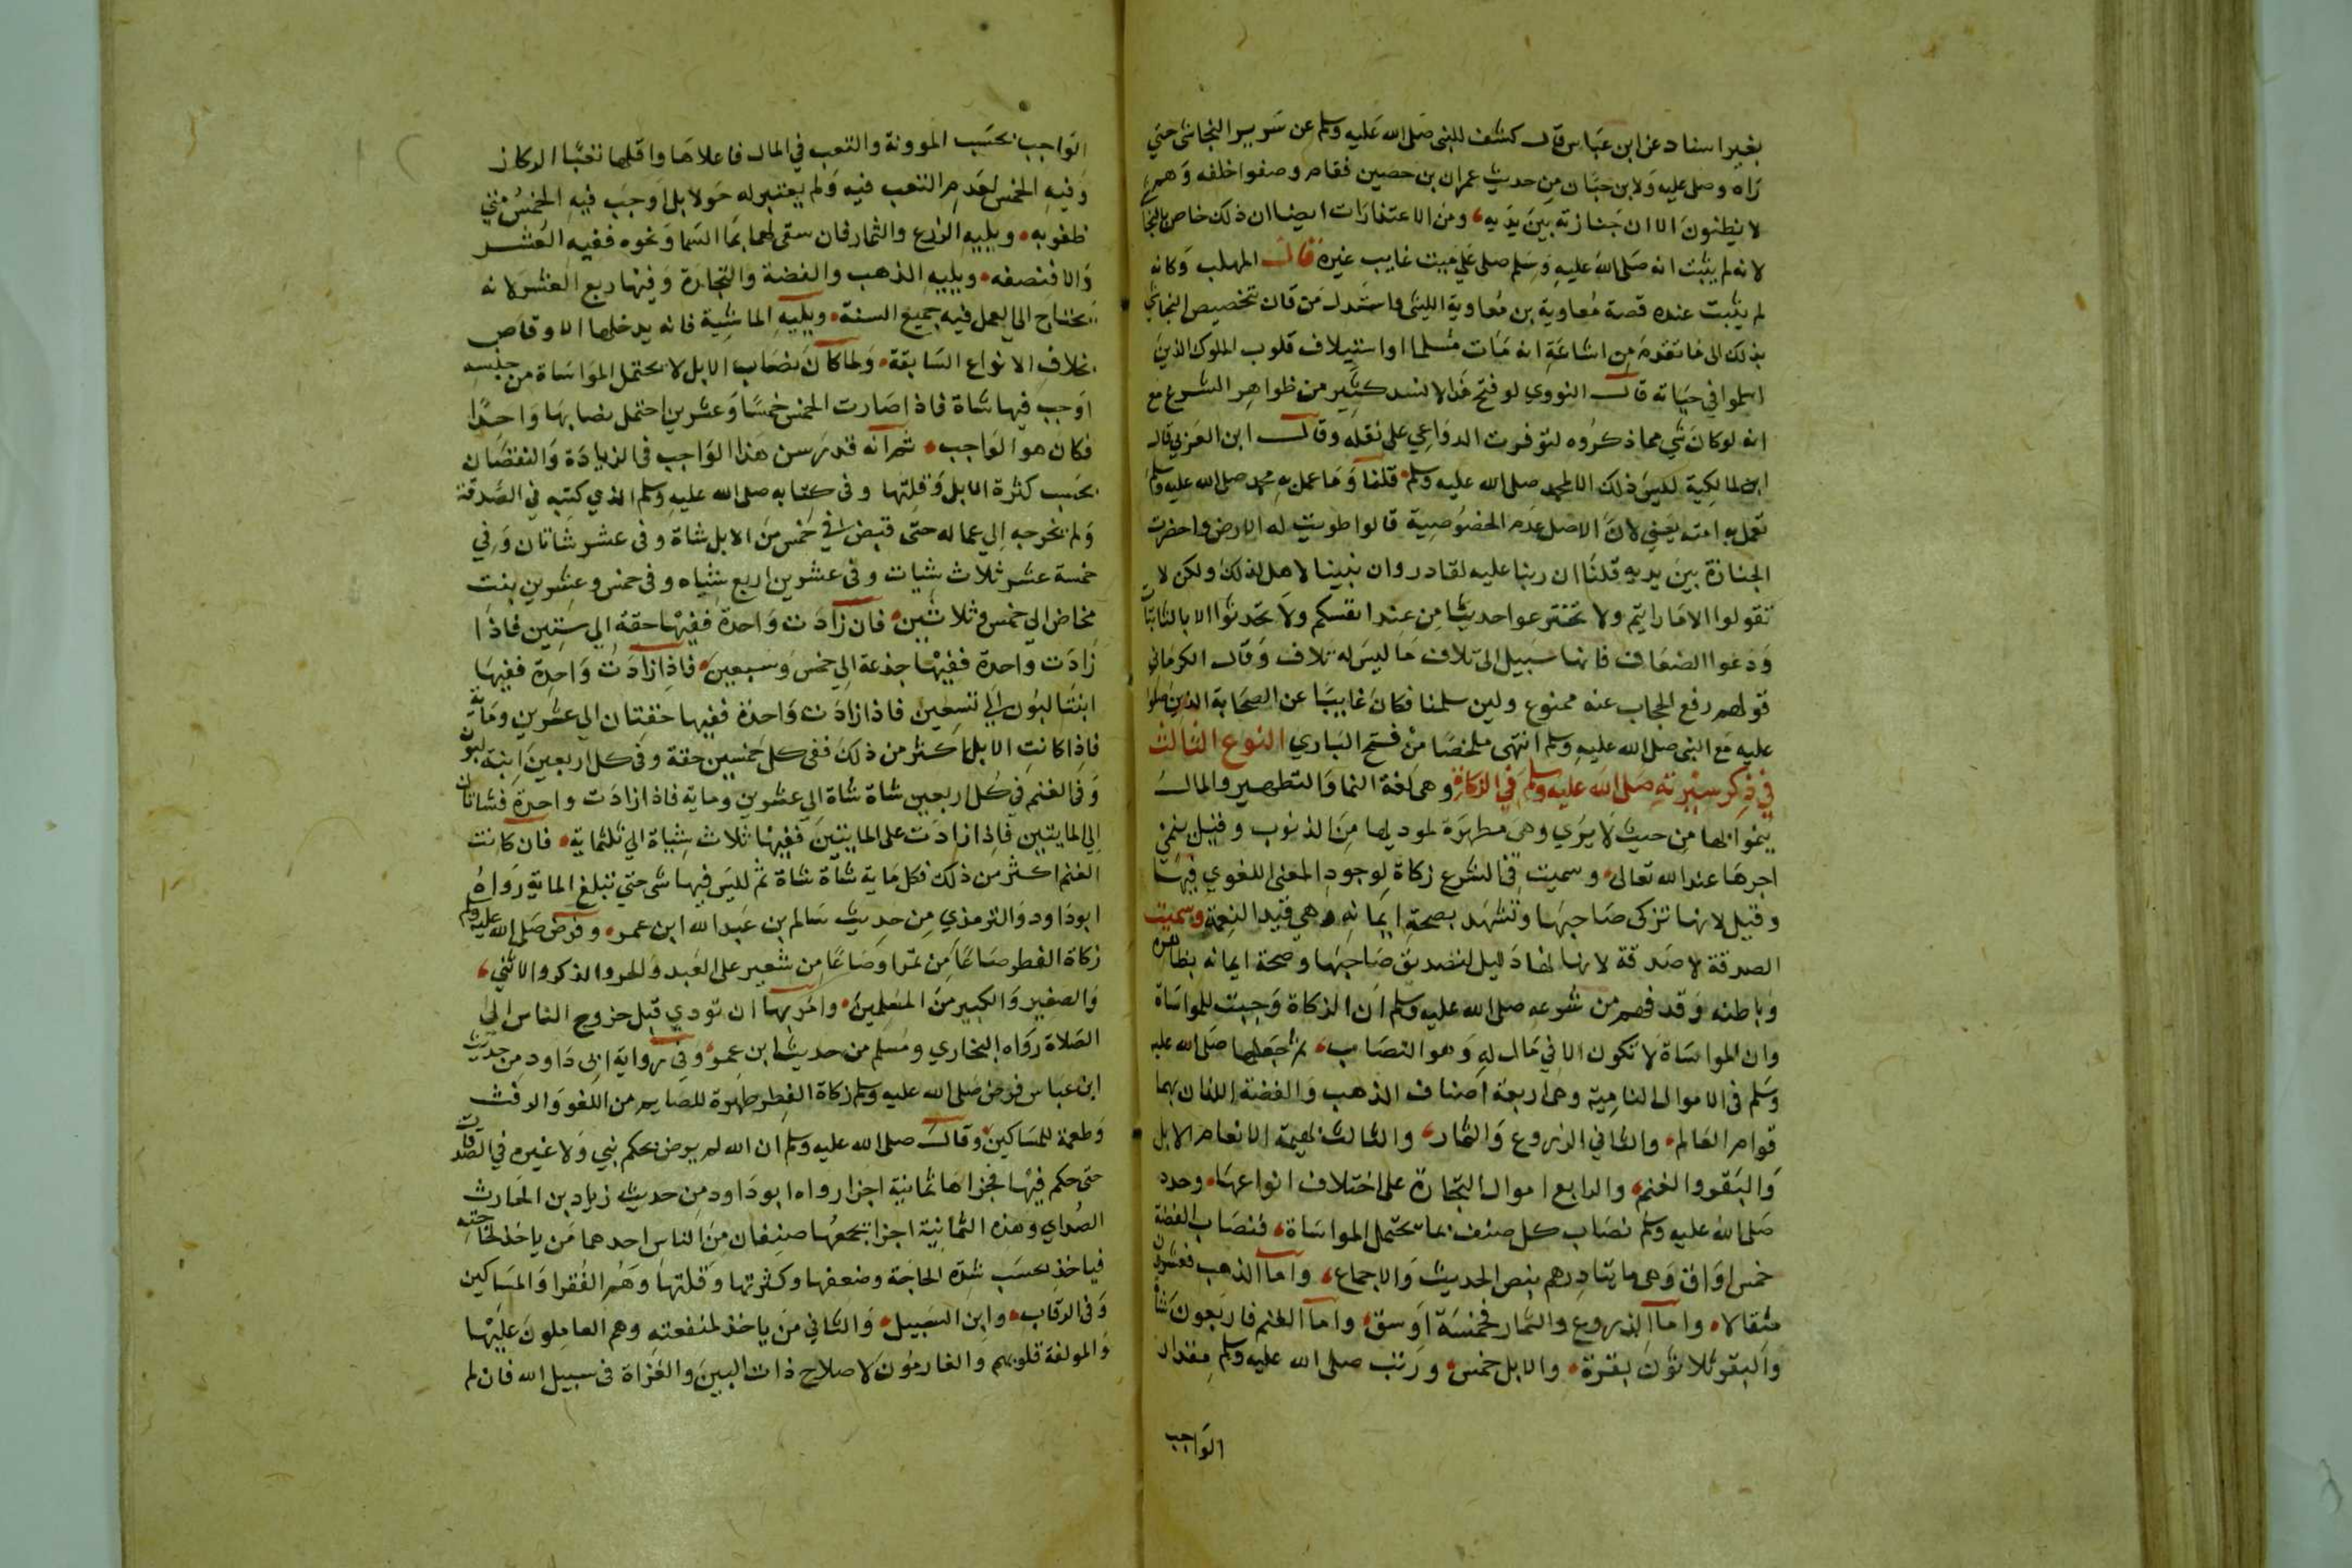 بغير اسناد عن ابن عباس قال كشف للنبى صلى الله عليه وسلم عن سرير النجاشى حتى
راه وصلى عليه ولابن حبان من حديث عمران بن حصين فقام وصفوا خلفه وهم
لا يظنون الا ان جنازته بين يديه ومن الاعتذارات ايضا ان ذلك خاص بالنجا
لانه لم يثبت انه صلى الله عليه وسلم صلى على ميت غايب غيره قال المهلب وكانه
لم يثبت عنده قصة معاوية بن معاوية الليثى واستدل من قال بتخصيص النجاشي
بذلك الى ما تقدم من اشاعة انه مات مسلما او استيلاف قلوب الملوك الذين
اسلموا في حياته قال النووي لو فتح هذا لانسد كثير من ظواهر الشرع مع
انه لو كان شي مما ذكروه لتوفرت الدواعي على نقله وقال ابن العربي قال
المالكية ليس ذلك الا لمحمد صلى الله عليه وسلم قلنا وما عمل به محمد صلى الله عليه وسلم
تعمل به امته يعني لان الاصل عدم الخصوصية قالوا طويت له الارض واحضرت
الجنازة بين يديه قلنا ان ربنا عليه لقادر وان نبينا لاهل لذلك ولكن لا
تقولوا الا ما رايتم ولا تخترعوا حديثا من عند انفسكم ولا تحدثوا الا بالثابتات
ودعوا الضعاف فانها سبيل الى تلاف ما ليس له تلاف وقال الكرمانى
قولهم رفع الحجاب عنه ممنوع ولين سلمنا فكان غايبا عن الصحابة الذين صلوا
عليه مع النبى صلى الله عليه وسلم انتهى ملخصا من فتح البارى النوع الثالث
في ذكر سيرته صلى الله عليه وسلم في الزكاة وهي لغة النما والتطهير والمال
ينموا بها من حيث لا يرى وهى مطهرة لموديها من الذنوب وقيل ينمى
اجرها عند الله تعالى وسميت في الشرع زكاة لوجود المعنى اللغوي فيها
وقيل لانها تزكى صاحبها وتشهد بصحة ايمانه وهي قيد النعمة وسميت
الصدقة لا صدقة لانها لها دليل لتصديق صاحبها وصحة ايمانه بظاهره
وباطنه وقد فهم من شرعه صلى الله عليه وسلم ان الزكاة وجبت للمواساة
وان المواساة لا تكون الا في مال له وهو النصاب ثم جعلها صلى الله عليه
وسلم فى الاموال النامية وهى اربعة اصناف الذهب والفضة اللذان بهما
قوام العالم والثاني الزروع والثمار والثالث بهيمة الانعام الابل
والبقر والغنم والرابع اموال التجارة على اختلاف انواعها وحدد
صلى الله عليه وسلم نصاب كل صنف بما يحتمل المواساة فنصاب الفضة
خمس اواق وهى مايتا درهم بنص الحديث والاجماع واما الذهب فعشرون
مثقالا واما الزروع والثمار فخمسة اوسق واما الغنم فاربعون شاة
والبقر ثلاثون بقرة والابل خمس ورتب صلى الله عليه وسلم مقدار
الواجب
الواجب بحسب المونة والتعب في المال فاعلاها واقلها تعبا الركاز
وفيه الخمس لعدم التعب فيه ولم يعتبر له حولا بل اوجب فيه الخمس متى
ظفر به ويليه الزرع والثمار فان سقى لهما بما السما ونحوه ففيه العشر
والا فنصفه ويليه الذهب والفضة والتجارة وفيها ربع العشر لانه
يحتاج الى العمل فيه جميع السنة ويليه الماشية فانه يدخلها الاوقاص
بخلاف الانواع السابقة ولما كان نصاب الابل لا يحتمل المواساة من جنسه
اوجب فيها شاة فاذا صارت الخمس خمسا وعشرين احتمل نصابها واحدا
فكان هو الواجب ثم انه قدر سن هذا الواجب فى الزيادة والنقصان
بحسب كثرة الابل وقلتها وفى كتابه صلى الله عليه وسلم الذي كتبه في الصدقة
ولم يخرجه الي عماله حتى قبض في خمس من الابل شاة وفى عشر شاتان وفي
خمسة عشر ثلاث شيات وفى عشرين اربع شياه وفى خمس وعشرين بنت
مخاض الي خمس وثلاثين فان زادت واحدة ففيها حقة الي ستين فاذا
زادت واحدة ففيها جذعة الي خمس وسبعين فاذا زادت واحدة ففيها
ابنتا لبون الي تسعين فاذا زادت واحدة ففيها حقتان الي عشرين وماية
فاذا كانت الابل اكثر من ذلك ففى كل خمسين حقة وفى كل اربعين ابنة لبون
وفى الغنم في كل اربعين شاة شاة الي عشرين وماية فاذا زادت واحدة فشاتان
الي المايتين فاذا زادت على المايتين ففيها ثلاث شياة الي ثلثماية فان كانت
الغنم اكثر من ذلك فكل ماية شاة شاة ثم ليس فيها شى حتى تبلغ الماية رواه
ابو داود والترمذي من حديث سالم بن عبد الله ابن عمر وفرض صلى الله عليه وسلم
زكاة الفطر صاعا من تمر او صاعا من شعير على العبد والحر والذكر والانثي
والصغير والكبير من المسلمين وامر بها ان تودي قبل خروج الناس الى
الصلاة رواه البخاري ومسلم من حديث ابن عمر وفى رواية ابى داود من حديث
ابن عباس فرض صلى الله عليه وسلم زكاة الفطر طهرة للصايم من اللغو والرفث
وطعمة للمساكين وقال صلى الله عليه وسلم ان الله لم يرض بحكم نبي ولا غيره في الصدقات
حتى حكم فيها فجزاها ثمانية اجزا رواه ابو داود من حديث زياد بن الحارث
الصداي وهذه الثمانية اجزا يجمعها صنفان من الناس احدهما من ياخذ لحاجته
فياخذ بحسب شدة الحاجة وضعفها وكثرتها وقلتها وهم الفقرا والمساكين
وفى الرقاب وابن السبيل والثاني من ياخذ لمنفعته وهم العاملون عليها
والمولفة قلوبهم والغارمون لاصلاح ذات البين والغزاة فى سبيل الله فان لم